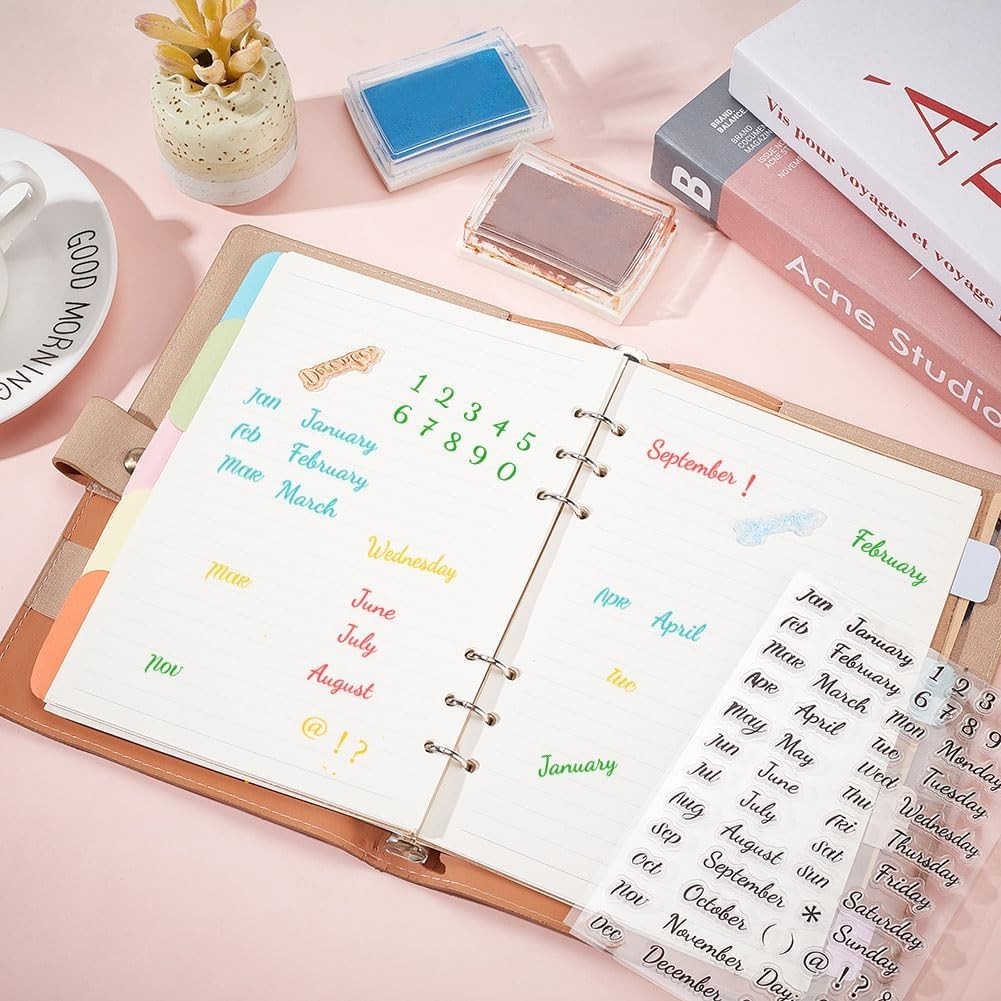 GOOD MORNING
BRAND.
BALANCE
BRAND
MAGAZIN
ISSUE N
ACNE ST
NOVEM
B
Acne Studio
Vis pour voyager et voyage
1 2 3 4 5
6 7 8 9 0
Jan January
Feb February
Mar March
Wednesday
Mar
June
July
August
Nov
@ ! ?
September !
February
Apr April
Tue
January
Jan January
Feb February
Mar March
Apr April
May May
Jun June
Jul July
Aug August
Sep September
Oct October
Nov November
Dec December
Mon Monday
Tue Tuesday
Wed Wednesday
Thu Thursday
Fri Friday
Sat Saturday
Sun Sunday
* ( ) Day: @ ! ?
1 2 3
6 7 8 9